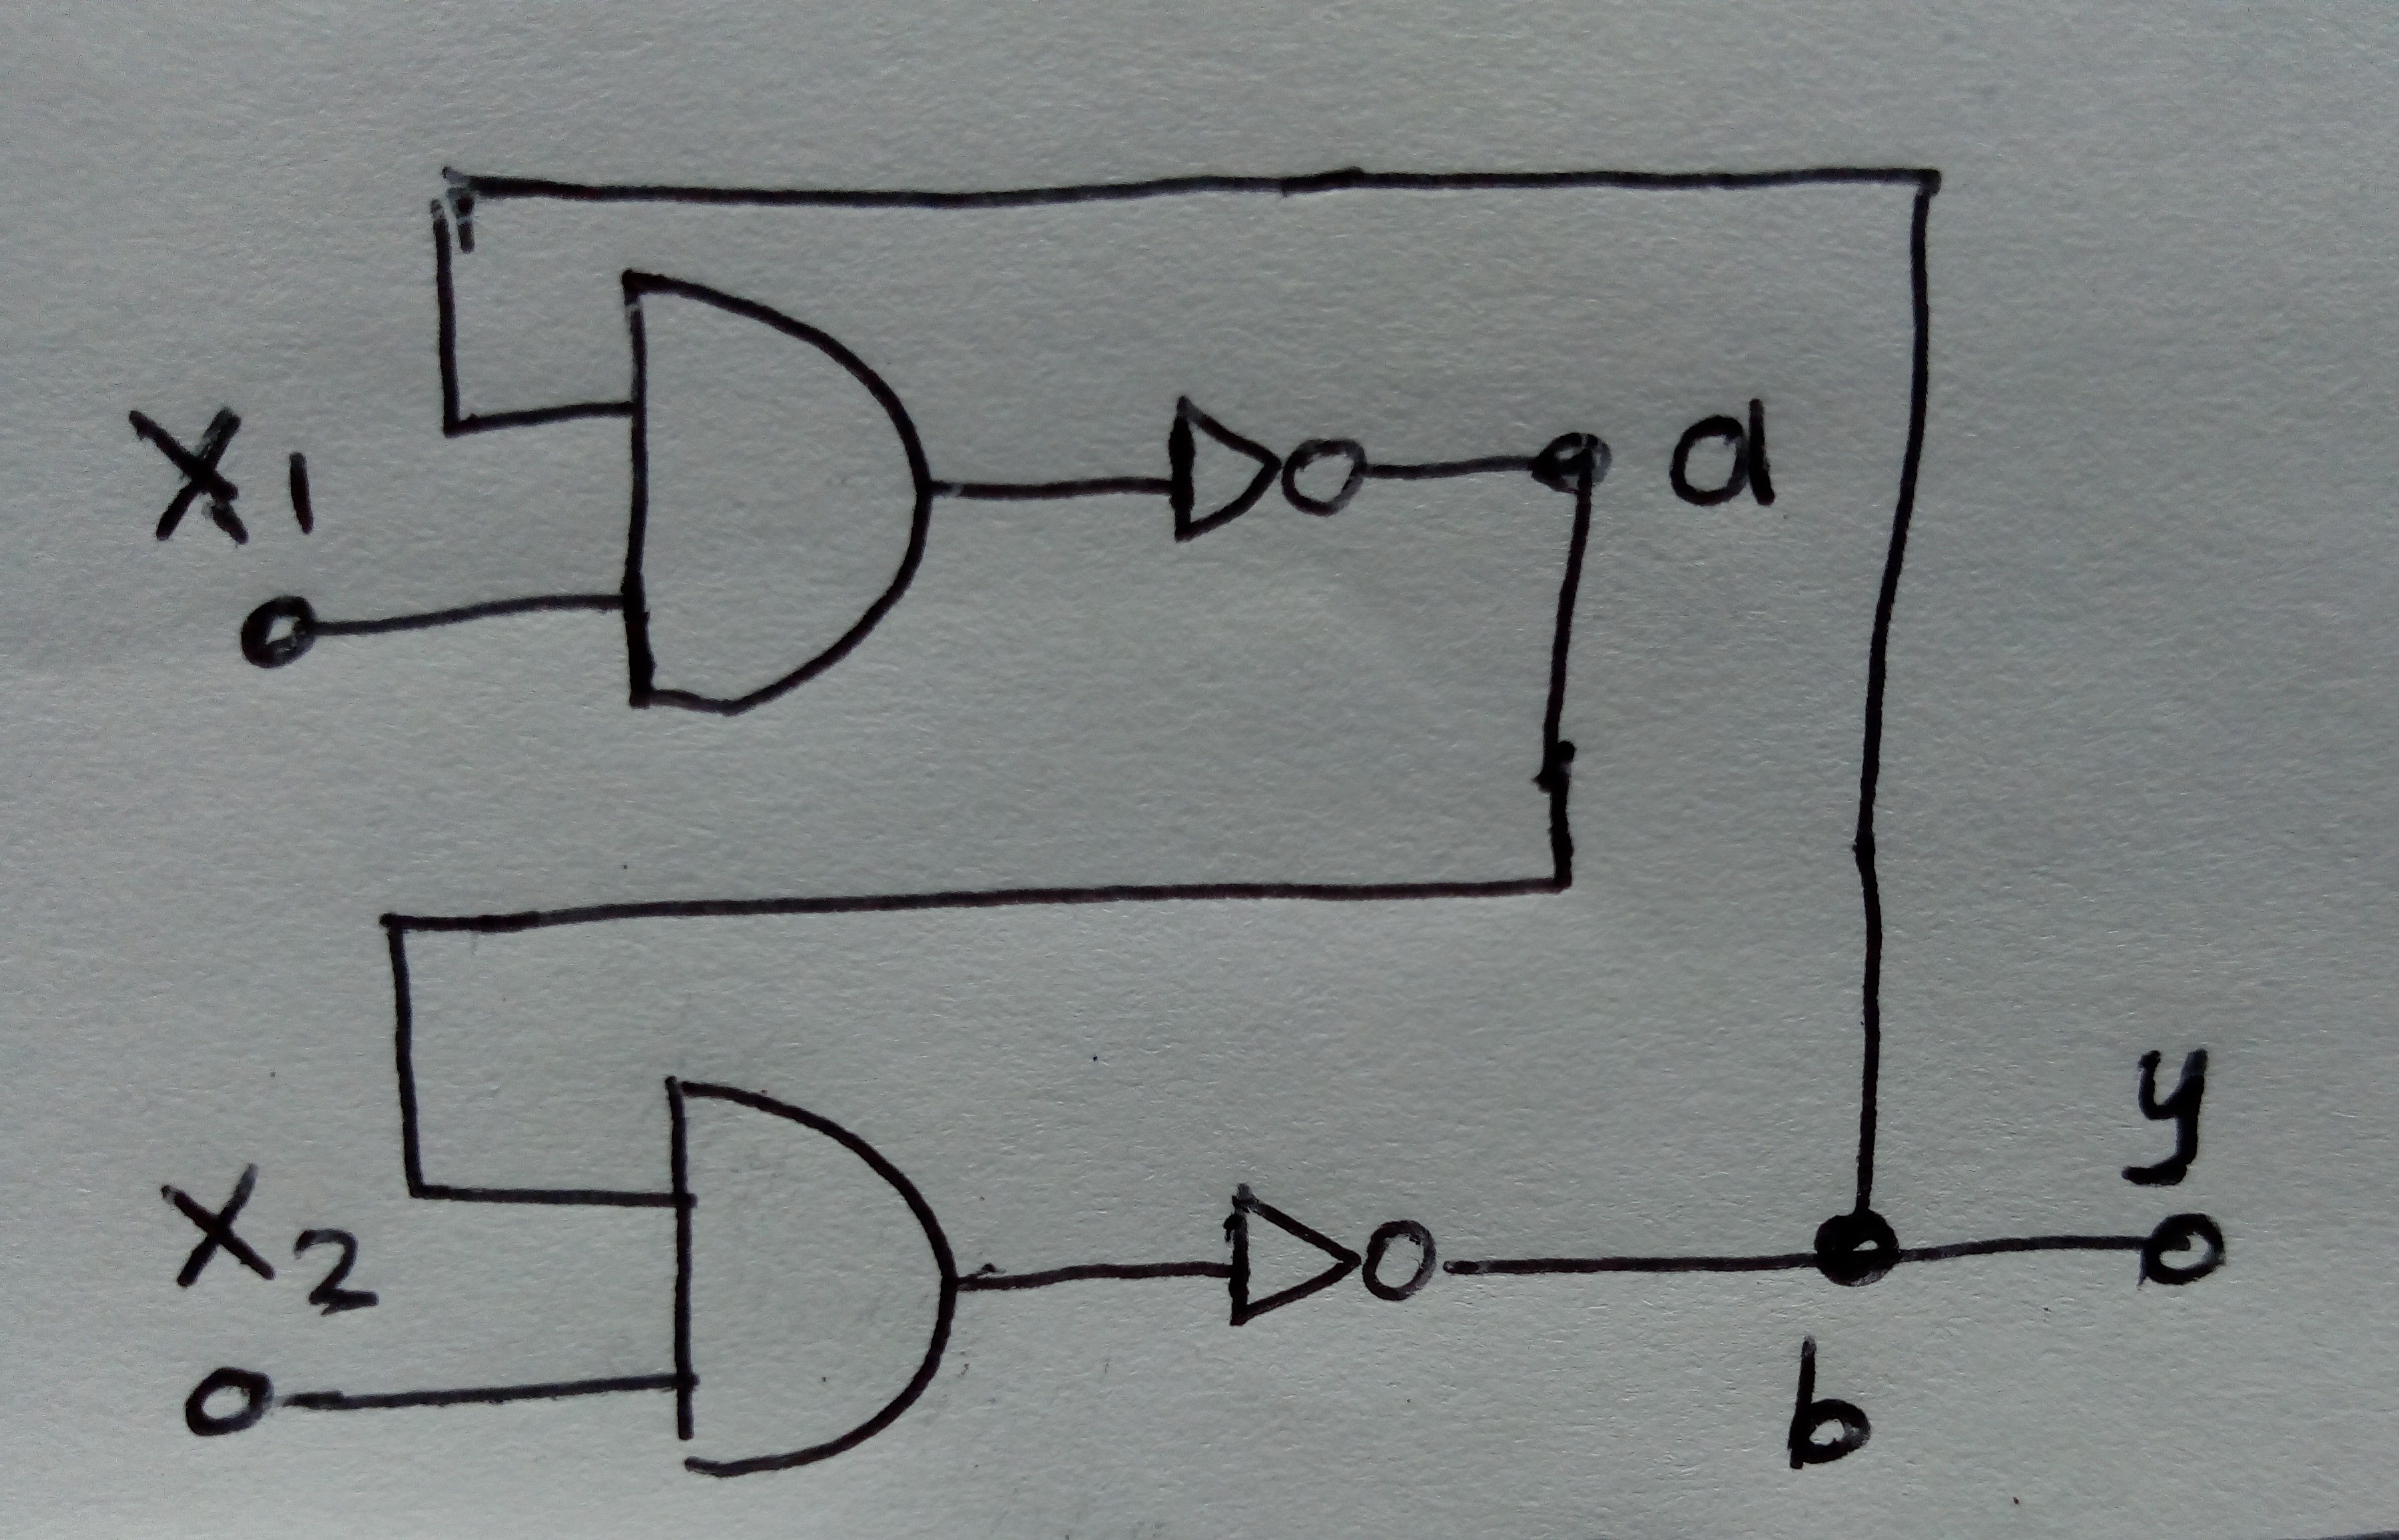 X1
a
X2
y
b